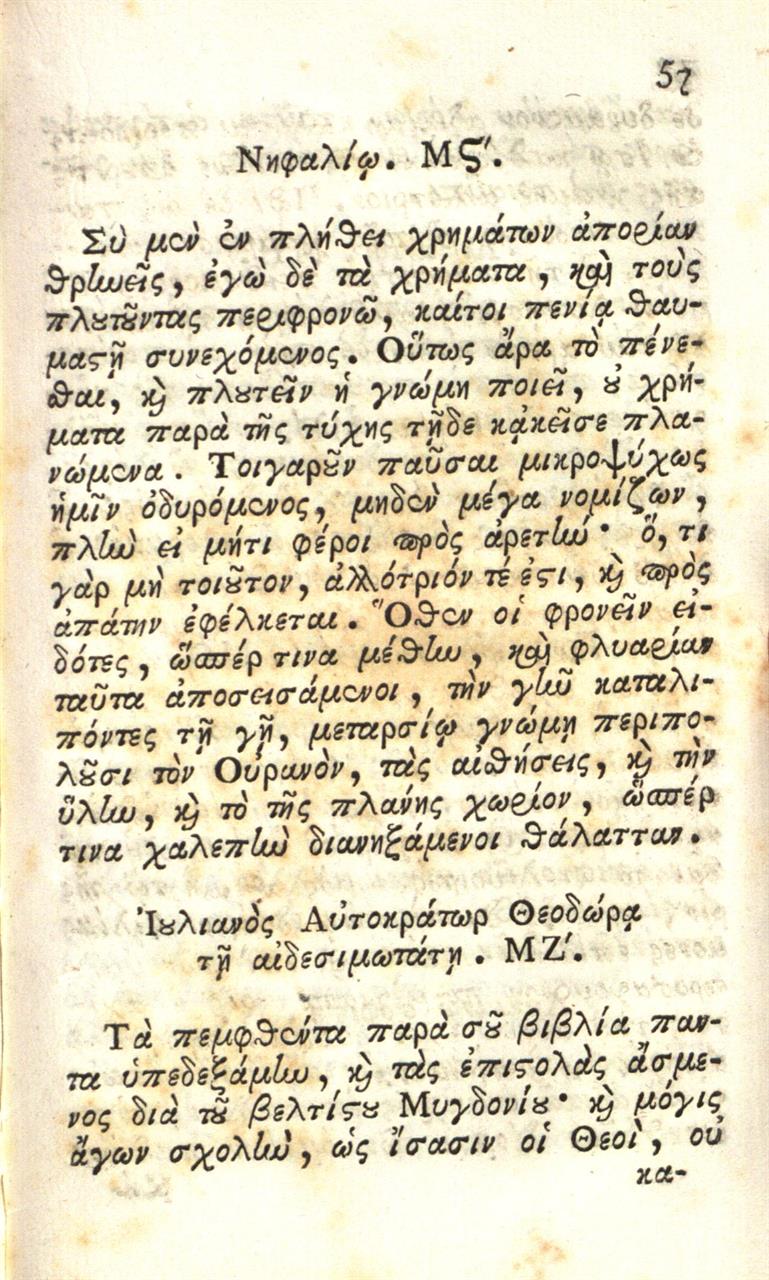 57
Νηφαλίῳ. Μϛ΄.
Σὺ μὲν ἐν πλήθει χρημάτων ἀπορίαν
θρηνεῖς, ἐγὼ δὲ τὰ χρήματα, καὶ τοὺς
πλουτοῦντας περιφρονῶ, καίτοι πενίᾳ θαυ-
μαστῇ συνεχόμενος. Οὕτως ἄρα τὸ πένε-
σθαι, καὶ πλουτεῖν ἡ γνώμη ποιεῖ, οὐ χρή-
ματα παρὰ τῆς τύχης τῇδε κᾀκεῖσε πλα-
νώμενα. Τοιγαροῦν παῦσαι μικροψύχως
ἡμῖν ὀδυρόμενος, μηδὲν μέγα νομίζων,
πλὴν εἰ μήτι φέροι πρὸς ἀρετήν· ὅ, τι
γὰρ μὴ τοιοῦτον, ἀλλότριόν τέ ἐστι, καὶ πρὸς
ἀπάτην ἐφέλκεται. Ὅθεν οἱ φρονεῖν εἰ-
δότες, ὥσπέρ τινα μέθην, καὶ φλυαρίαν
ταῦτα ἀποσεισάμενοι, τὴν γῆν καταλι-
πόντες τῇ γῇ, μεταρσίῳ γνώμῃ περιπο-
λοῦσι τὸν Οὐρανὸν, τὰς αἰσθήσεις, καὶ τὴν
ὕλην, καὶ τὸ τῆς πλάνης χωρίον, ὥσπέρ
τινα χαλεπὴν διανηξάμενοι θάλατταν.
Ἰουλιανὸς Αὐτοκράτωρ Θεοδώρᾳ
τῇ αἰδεσιμωτάτῃ. ΜΖ΄.
Τὰ πεμφθέντα παρὰ σοῦ βιβλία παν-
τα ὑπεδεξάμην, καὶ τὰς ἐπιστολὰς ἄσμε-
νος διὰ τοῦ βελτίστου Μυγδονίου· καὶ μόγις
ἄγων σχολὴν, ὡς ἴσασιν οἱ Θεοὶ, οὐ
κα-